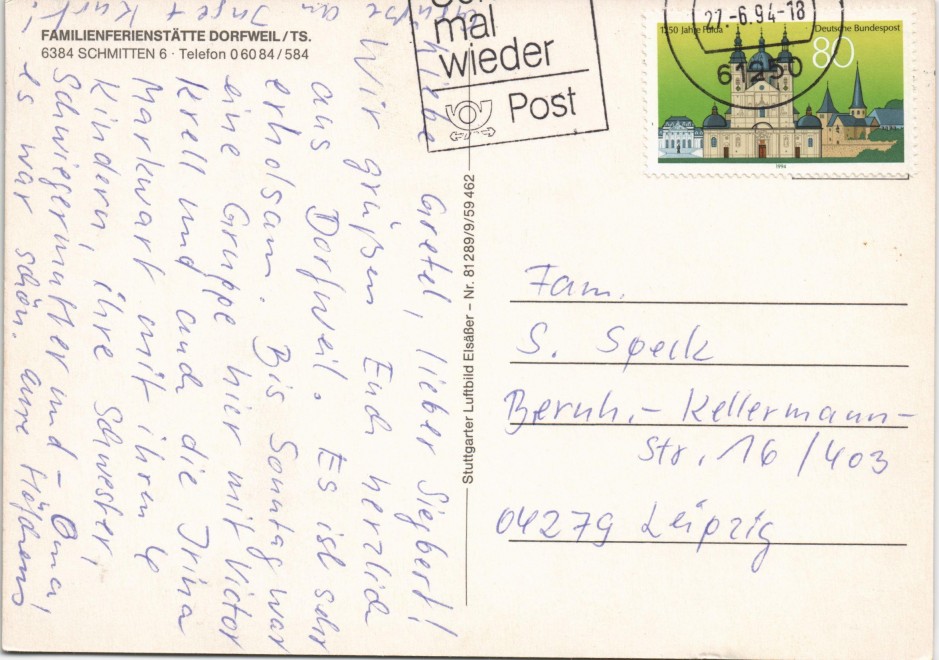 FAMILIENFERIENSTÄTTE DORFWEIL/TS.
6384 SCHMITTEN 6 · Telefon 0 60 84 / 584
mal
wieder
Post
27.-6.94-18
61250
1250 Jahre Fulda
Deutsche Bundespost
80
1994
Stuttgarter Luftbild Elsäßer – Nr. 81 289/9/59 462
Liebe Gretel, lieber Siegbert!
Wir grüßen Euch herzlich
aus Dorfweil. Es ist sehr
erholsam. Bis Sonntag war
eine Gruppe hier mit Victor
Krell und auch die Irina
Markwart mit ihren 4
Kindern, ihre Schwester,
Schwiegermutter und -Oma,
es war schön.
Inge + Kurt
Fam.
S. Speck
Bernh.- Kellermann-
Str. 16/403
04279 Leipzig